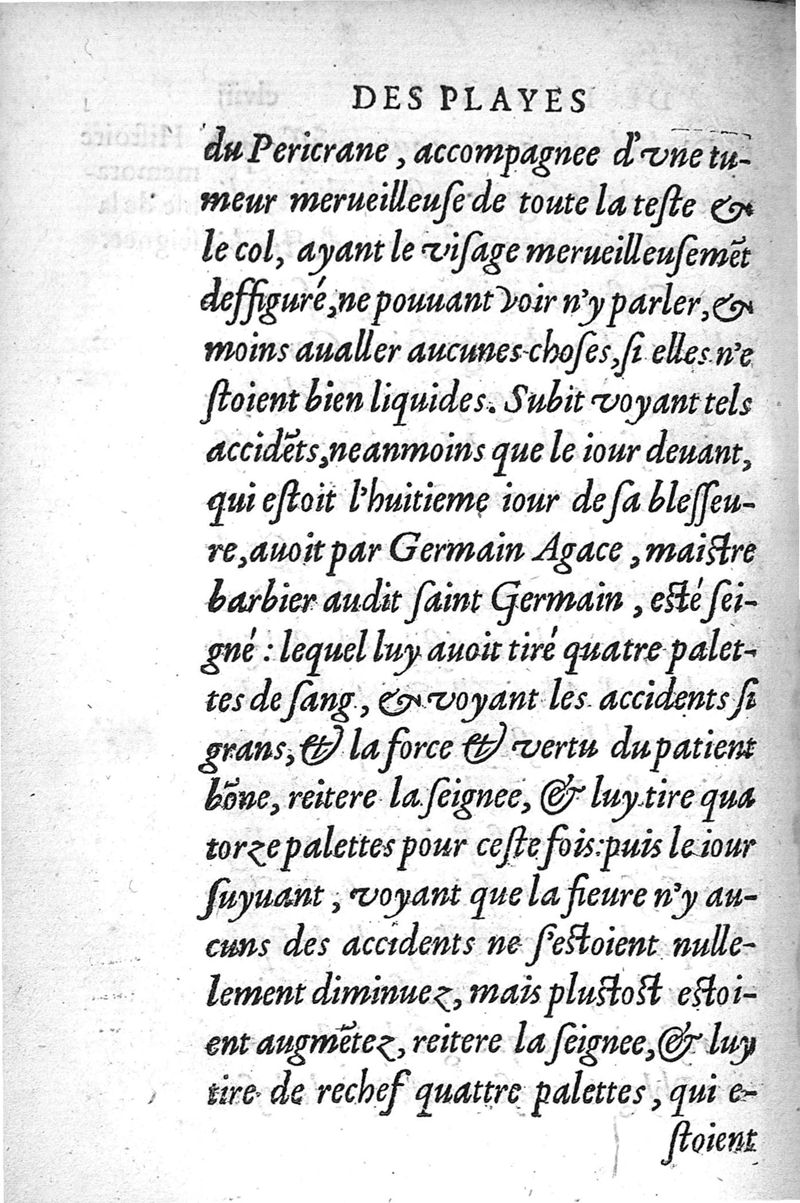 DES PLAYES
du Pericrane, accompagnee d'vne tu-
meur merueilleuſe de toute la teſte &
le col, ayant le viſage merueilleuſemẽt
deffiguré, ne pouuant voir n'y parler, &
moins aualler aucunes choſes, ſi elles n'e
ſtoient bien liquides. Subit voyant tels
accidẽts, neanmoins que le iour deuant,
qui eſtoit l'huitieme iour de ſa bleſſeu-
re, auoit par Germain Agace, maiſtre
barbier audit ſaint Germain, eſté ſei-
gné : lequel luy auoit tiré quatre palet-
tes de ſang, & voyant les accidents ſi
grans, & la force & vertu du patient
bõne, reitere la ſeignee, & luy tire qua
torze palettes pour ceſte fois: puis le iour
ſuyuant, voyant que la fieure n'y au-
cuns des accidents ne s'eſtoient nulle-
lement diminuez, mais pluſtoſt eſtoi-
ent augmẽtez, reitere la ſeignee, & luy
tire de rechef quattre palettes, qui e-
ſtoient